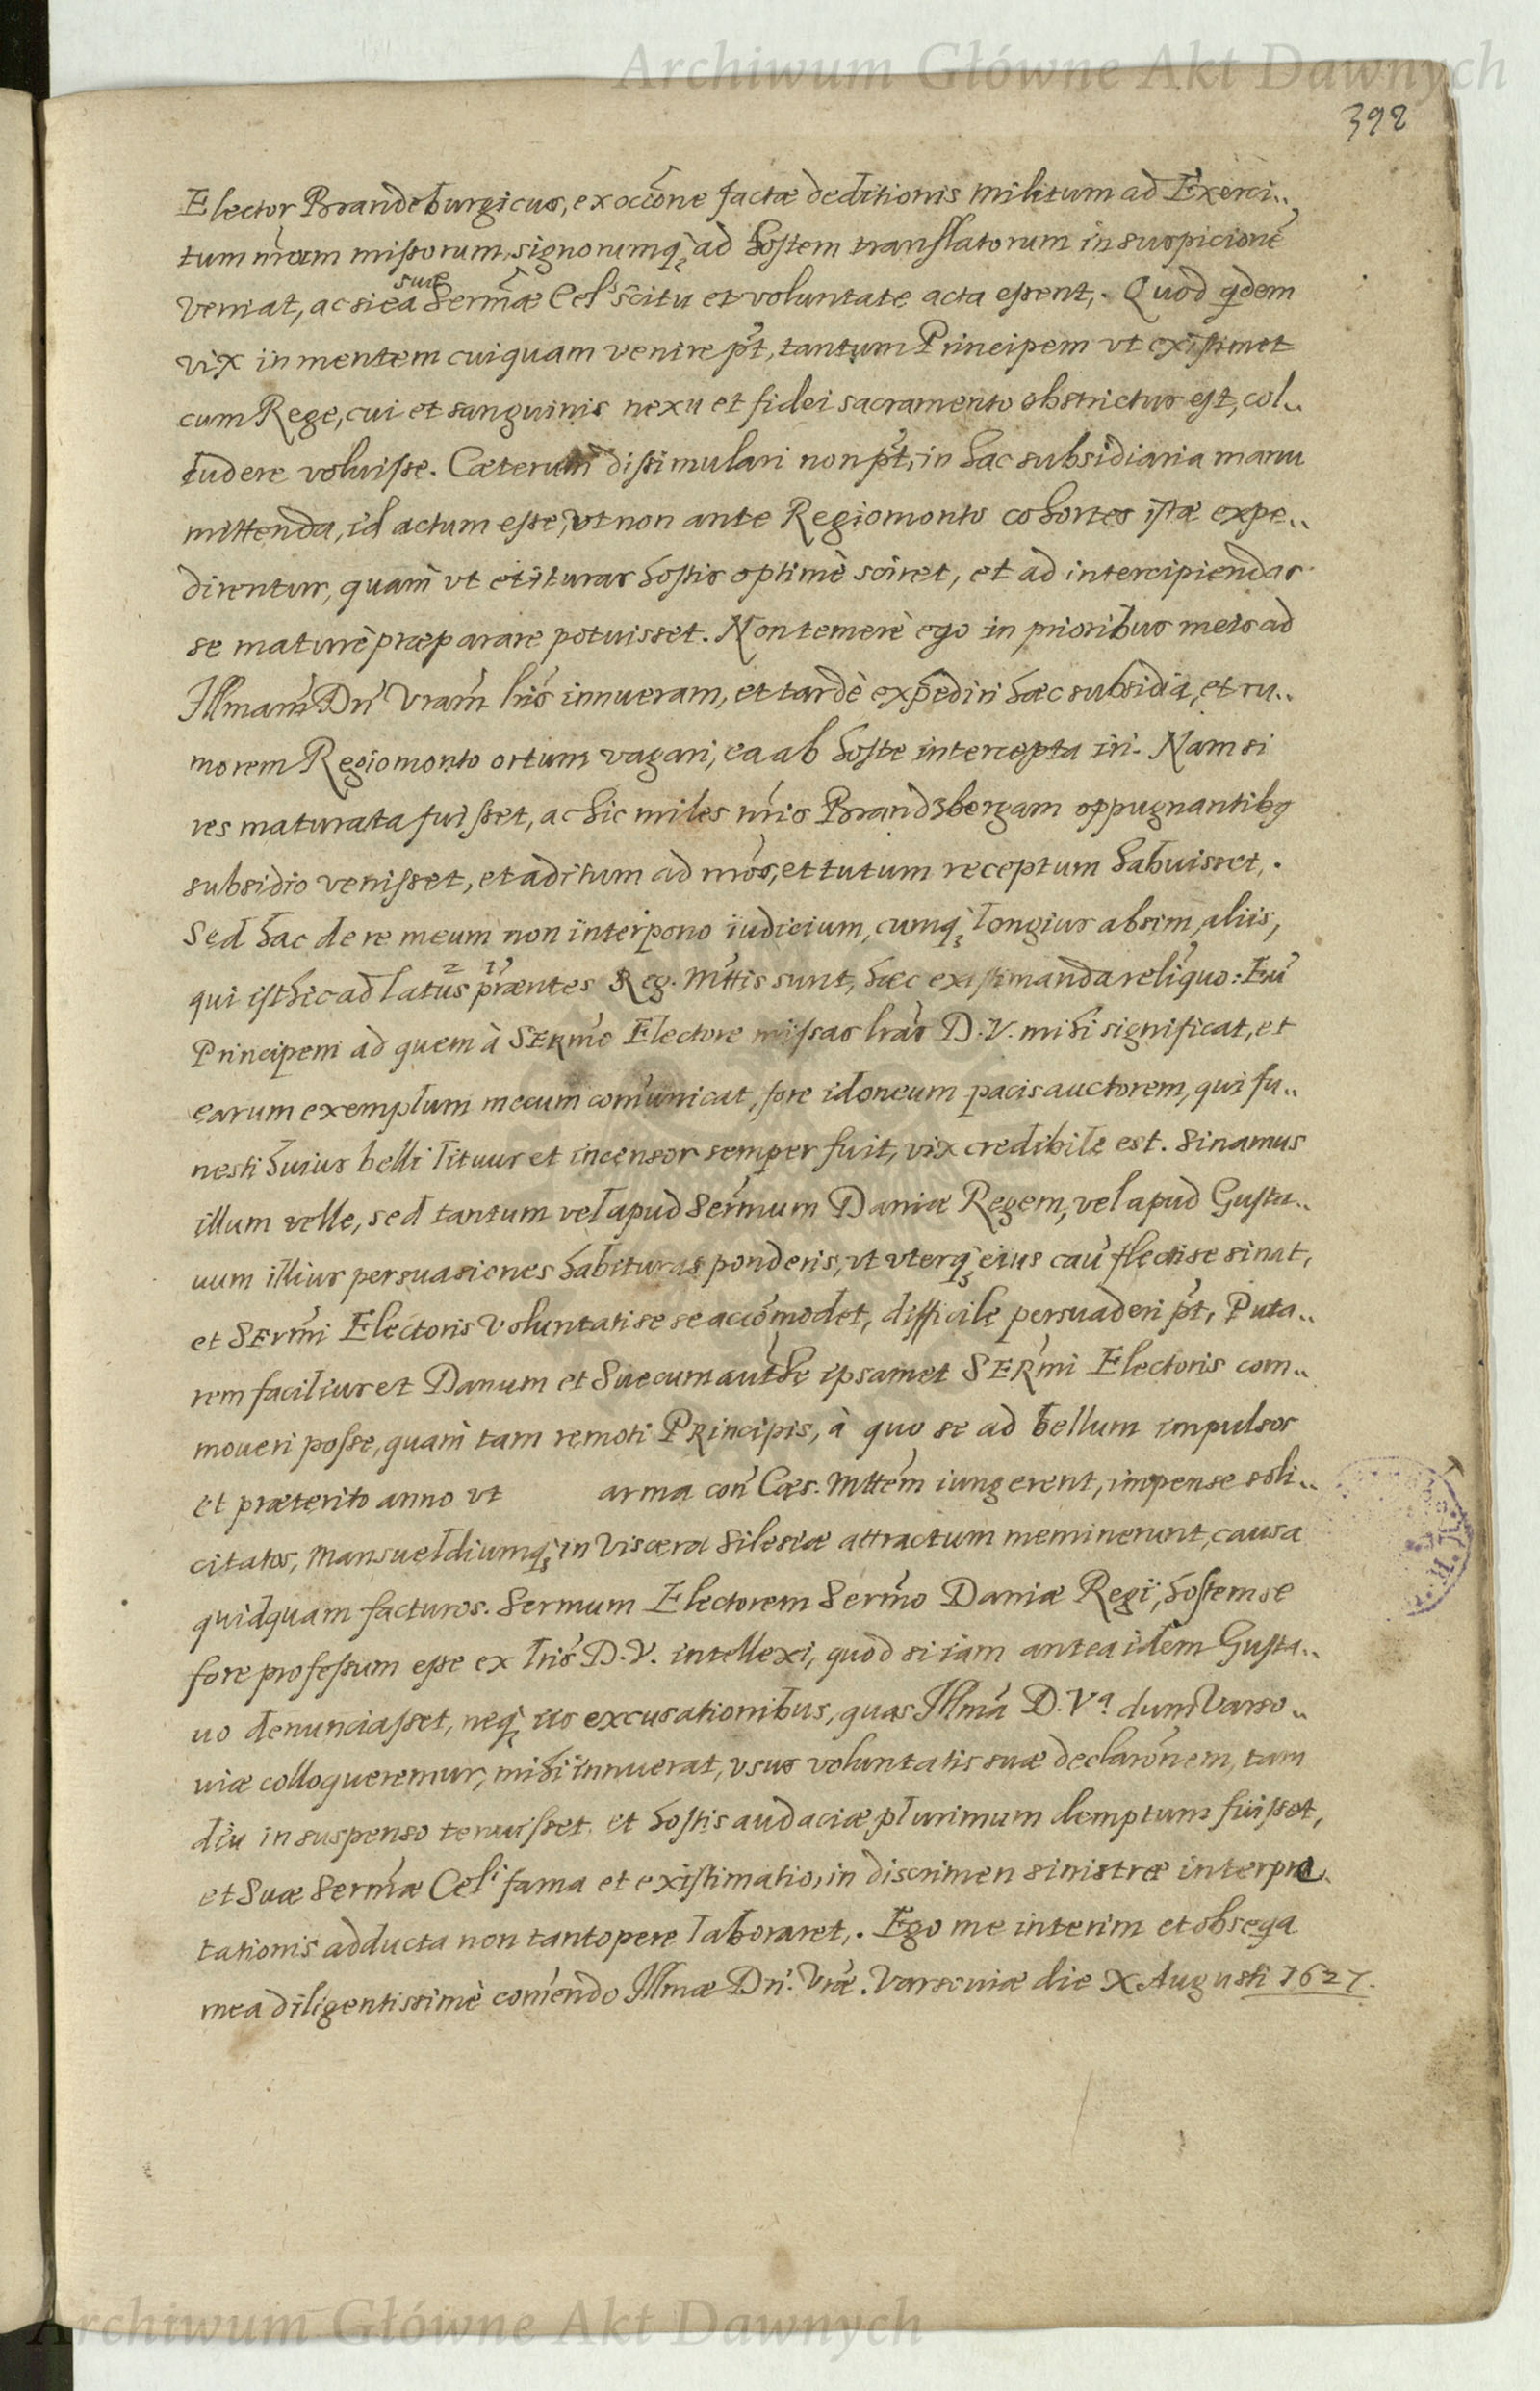 Archiwum Główne Akt Dawnych
392
Elector Brandeburgicus, ex occōne factæ deditionis militum ad Exerci„
tum nr̃am missorum, signorumq́; ad hostem translatorum in suspicionē
veniat, ac si ea suæ Sermæ̃ Cels scitu et voluntate acta essent,. Quod qdem
vix in mentem cuiquam venire põt, tantum Principem vt existimet
cum Rege, cui et sanguinis nexu et fidei sacramento obstrictus est, col„
ludere voluisse. Cæterum dissimulari non põt, in hac subsidiaria manu
mittenda, id actum esse, vt non ante Regiomonto cohortes istæ expe„
direntur, quam vt et ituras hostis optimè sciret, et ad intercipiendas
se maturè præparare potuisset. Non temerè ego in prioribus meis ad
Illmam̃ Dñ Vram̃ lr̃is innueram, et tardè expediri hæc subsidia, et ru„
morem Regiomonto ortum vagari, ea ab hoste intercepta iri. Nam si
res maturata fuisset, ac hic miles nr̃is Brandsbergam oppugnantibq
subsidio venisset, et aditum ad nr̃os, et tutum receptum habuisset,.
Sed hac de re meum non interpono iudicium, cumq́; longius absim, aliis,
qui isthic ad latus 2 præntes 1 Reg. Mttis sunt, hæc existimanda relinquo: Eū
Principem ad quem à SERmo Electore missas lrãs D.V. mihi significat, et
earum exemplum mecum com̃unicat, fore idoneum pacis auctorem, qui fu„
nesti huius belli lituus et incensor semper fuit, vix credibile est. Sinamus
illum velle, sed tantum vel apud Sermum Daniæ Regem, vel apud Gusta„
uum illius persuasiones habituras ponderis, vt vterq́; eius cau flecti se sinat,
et SERmi Electoris voluntati sese accom̃odet, difficile persuaderi põt, Puta„
rem facilius et Danum et Suecum authe ipsamet SERmi Electoris com„
moueri posse, quam tam remoti PRincipis, à quo se ad bellum impulsos
et præterito anno vt arma con Cæs. Mttem iungerent, impense soli„
citatos, Mansueldiumq́; in viscera Silesiæ attractum meminerunt, causa
quidquam facturos. Sermum Electorem Sermo Daniæ Regi, hostem se
fore professum esse ex lr̃is D.V. intellexi, quod si iam antea idem Gusta„
uo denunciasset, neq́; iis excusationibus, quas Illma D.Vª dum Varso„
uiæ colloqueremur, mihi innuerat, vsus voluntatis suæ declarōnem, tam
diu in suspenso tenuisset, et hostis audaciæ plurimum demptum fuisset,
et Suæ Sermæ Celi fama et existimatio, in discrimen sinistræ interpre„
tationis adducta non tantopere laboraret,. Ego me interim et obseqa
mea diligentissimè com̃endo Illmæ Dñ. Vræ̃. Varsouiæ die X Augusti 1627.
Archiwum Główne Akt Dawnych